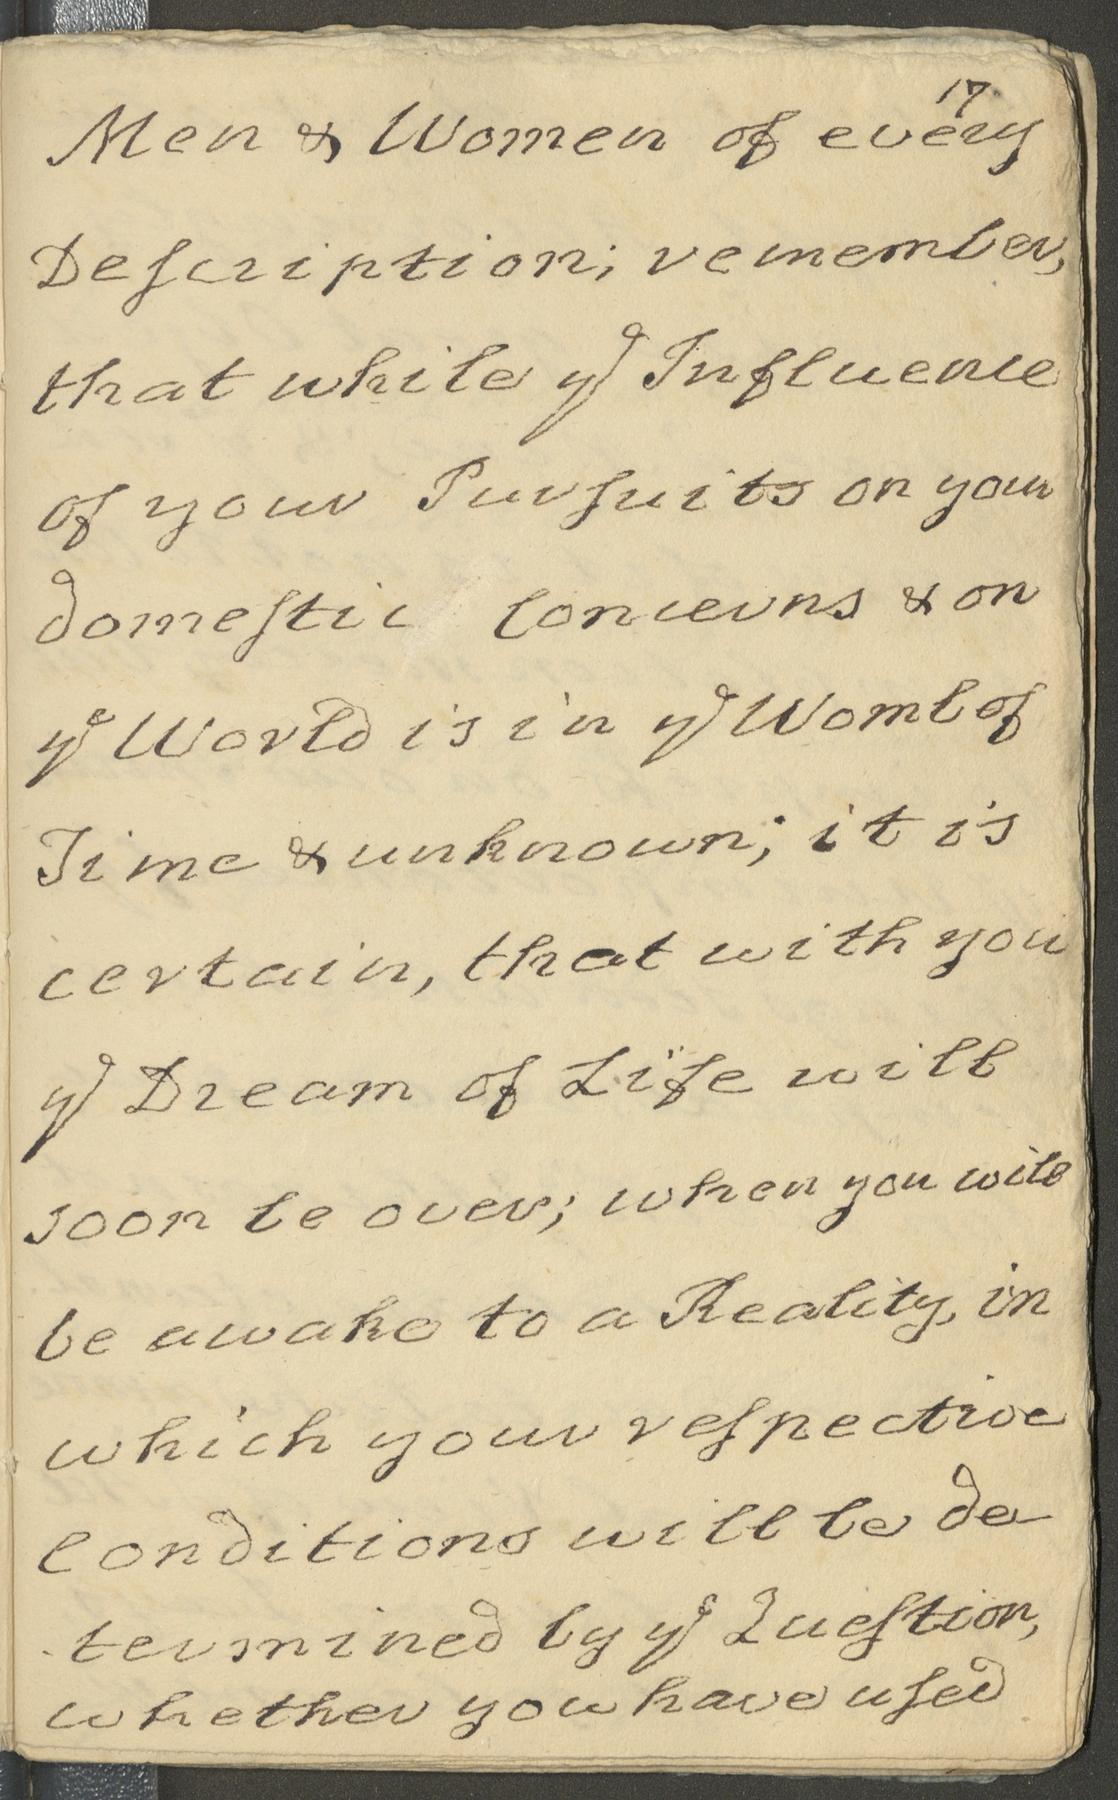 17.
Men & Women of every
Deſcription; remember,
that while yᵉ Influence
of your Purſuits on your
domeſtic Concerns & on
yᵉ World is in yᵉ Womb of
Time & unknown; it is
certain, that with you
yᵉ Dream of Life will
soon be over; when you will
be awake to a Reality, in
which your reſpective
Conditions will be de-
termined by yᵉ Queſtion,
whether you have uſed